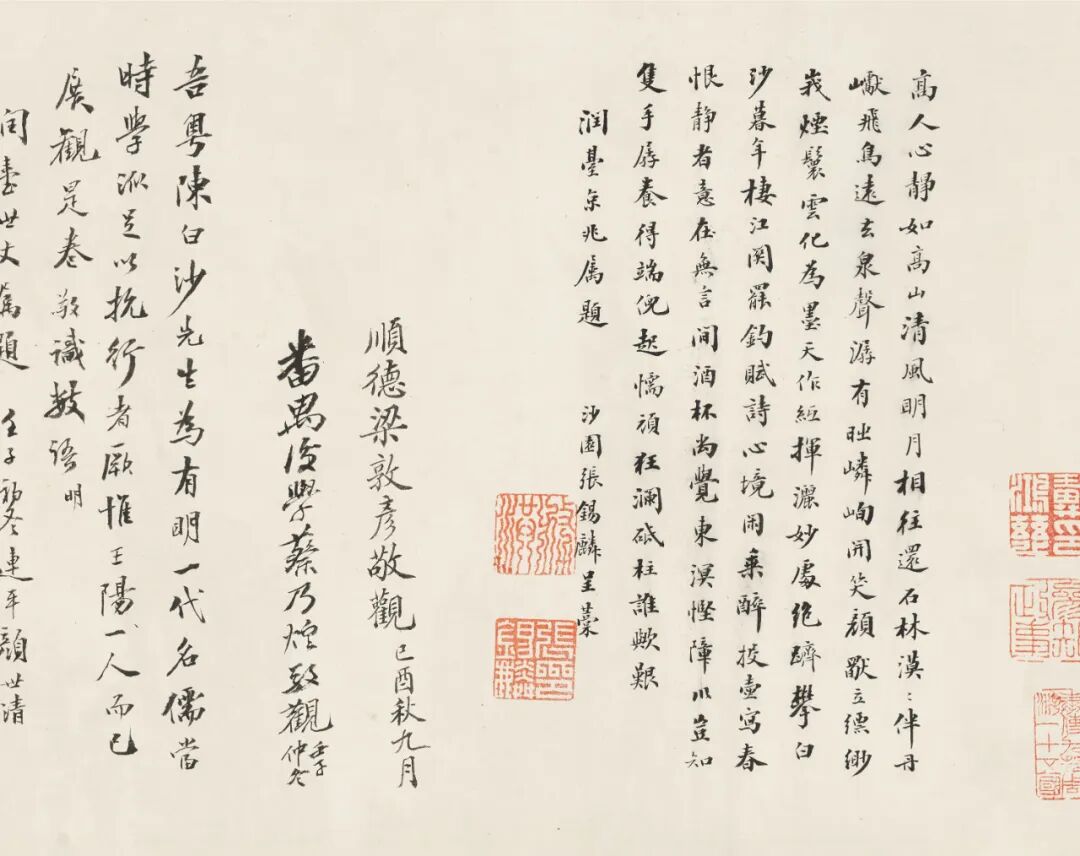 高人心靜如高山清風明月相往還石林漠〻伴丹
巘飛鳥遠去泉聲潺有時嶙峋開笑顏獸立縹緲
峩煙鬟雲化為墨天作絙揮灑妙處絶躋攀白
沙暮年棲江関罷釣賦詩心境閑乘醉投壺寫春
恨靜者意在無言間酒杯尚覺東溟慳障川豈知
隻手孱養得端倪起懦頑狂瀾砥柱誰歟艱
潤臺京兆属題 沙園張錫麟呈藁
順德梁敦彥敬觀 己酉秋九月
番禺後學蔡乃煌敬觀 壬子仲冬
吾粵陳白沙先生為有明一代名儒當
時學派足以抗行者厥惟王陽明一人而已
展觀是卷敬識數語
閏臺世丈屬題 壬子初冬連平顏世清